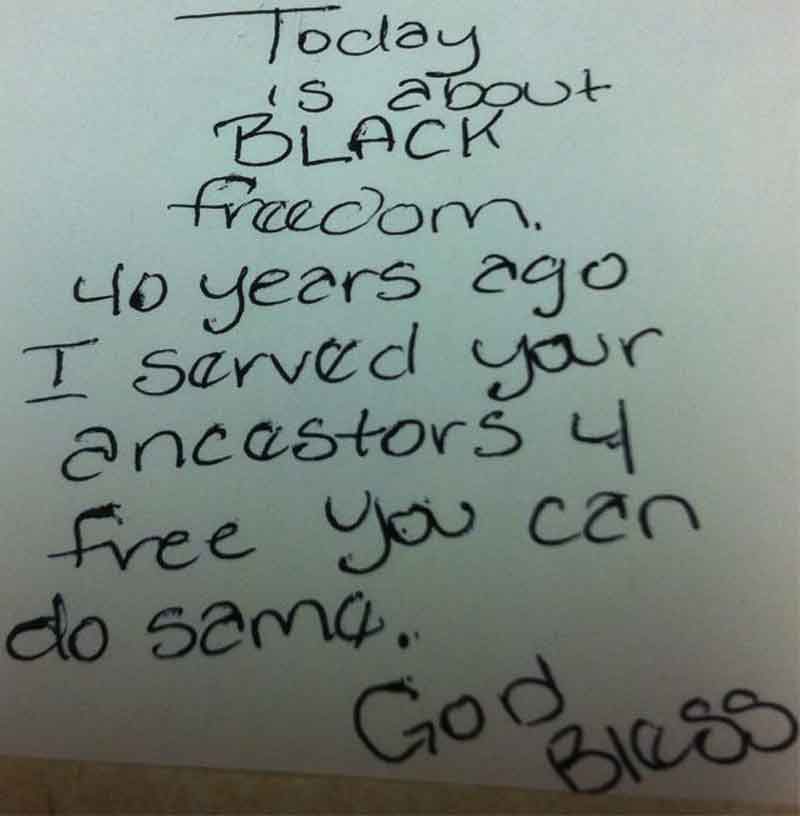 Today
is about
BLACK
freedom.
40 years ago
I served your
ancestors 4
free you can
do same.
God
Bless